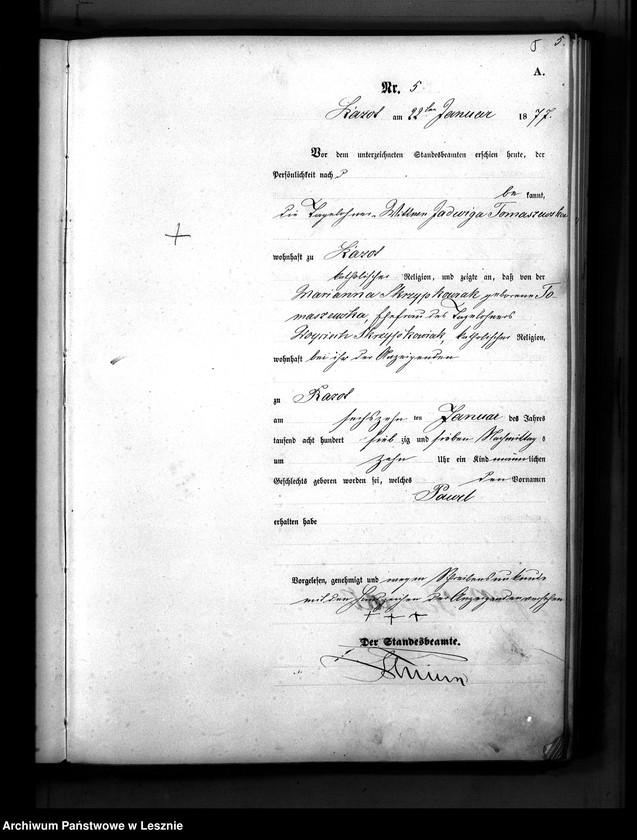 5 5.
A.
Nr. 5
Karol am 22ten Januar 1877.
Vor dem unterzeichneten Standesbeamten erschien heute, der
Persönlichkeit nach
be kannt,
die Tagelohner-Wittwe Jadwiga Tomaszewska
wohnhaft zu
katholischer Religion, und zeigte an, daß von der
Marianna Skrzypkowiak geborene To
maszewska, Ehefrau des Tagelohners
Woyciech Skrzypkowiak, katholischer Religion,
wohnhaft bei ihr der Anzeigenden
zu
am sechszehn ten Januar des Jahres
tausend acht hundert sieb zig und sieben Nachmittag s
um zehn Uhr ein Kind männ lichen
Geschlechts geboren worden sei, welches den Vornamen
Pawel
erhalten habe
Vorgelesen, genehmigt und wegen Schreibensunkunde
mit den Handzeichen der Anzeigenden versehen
+ + +
Der Standesbeamte.
Archiwum Państwowe w Lesznie